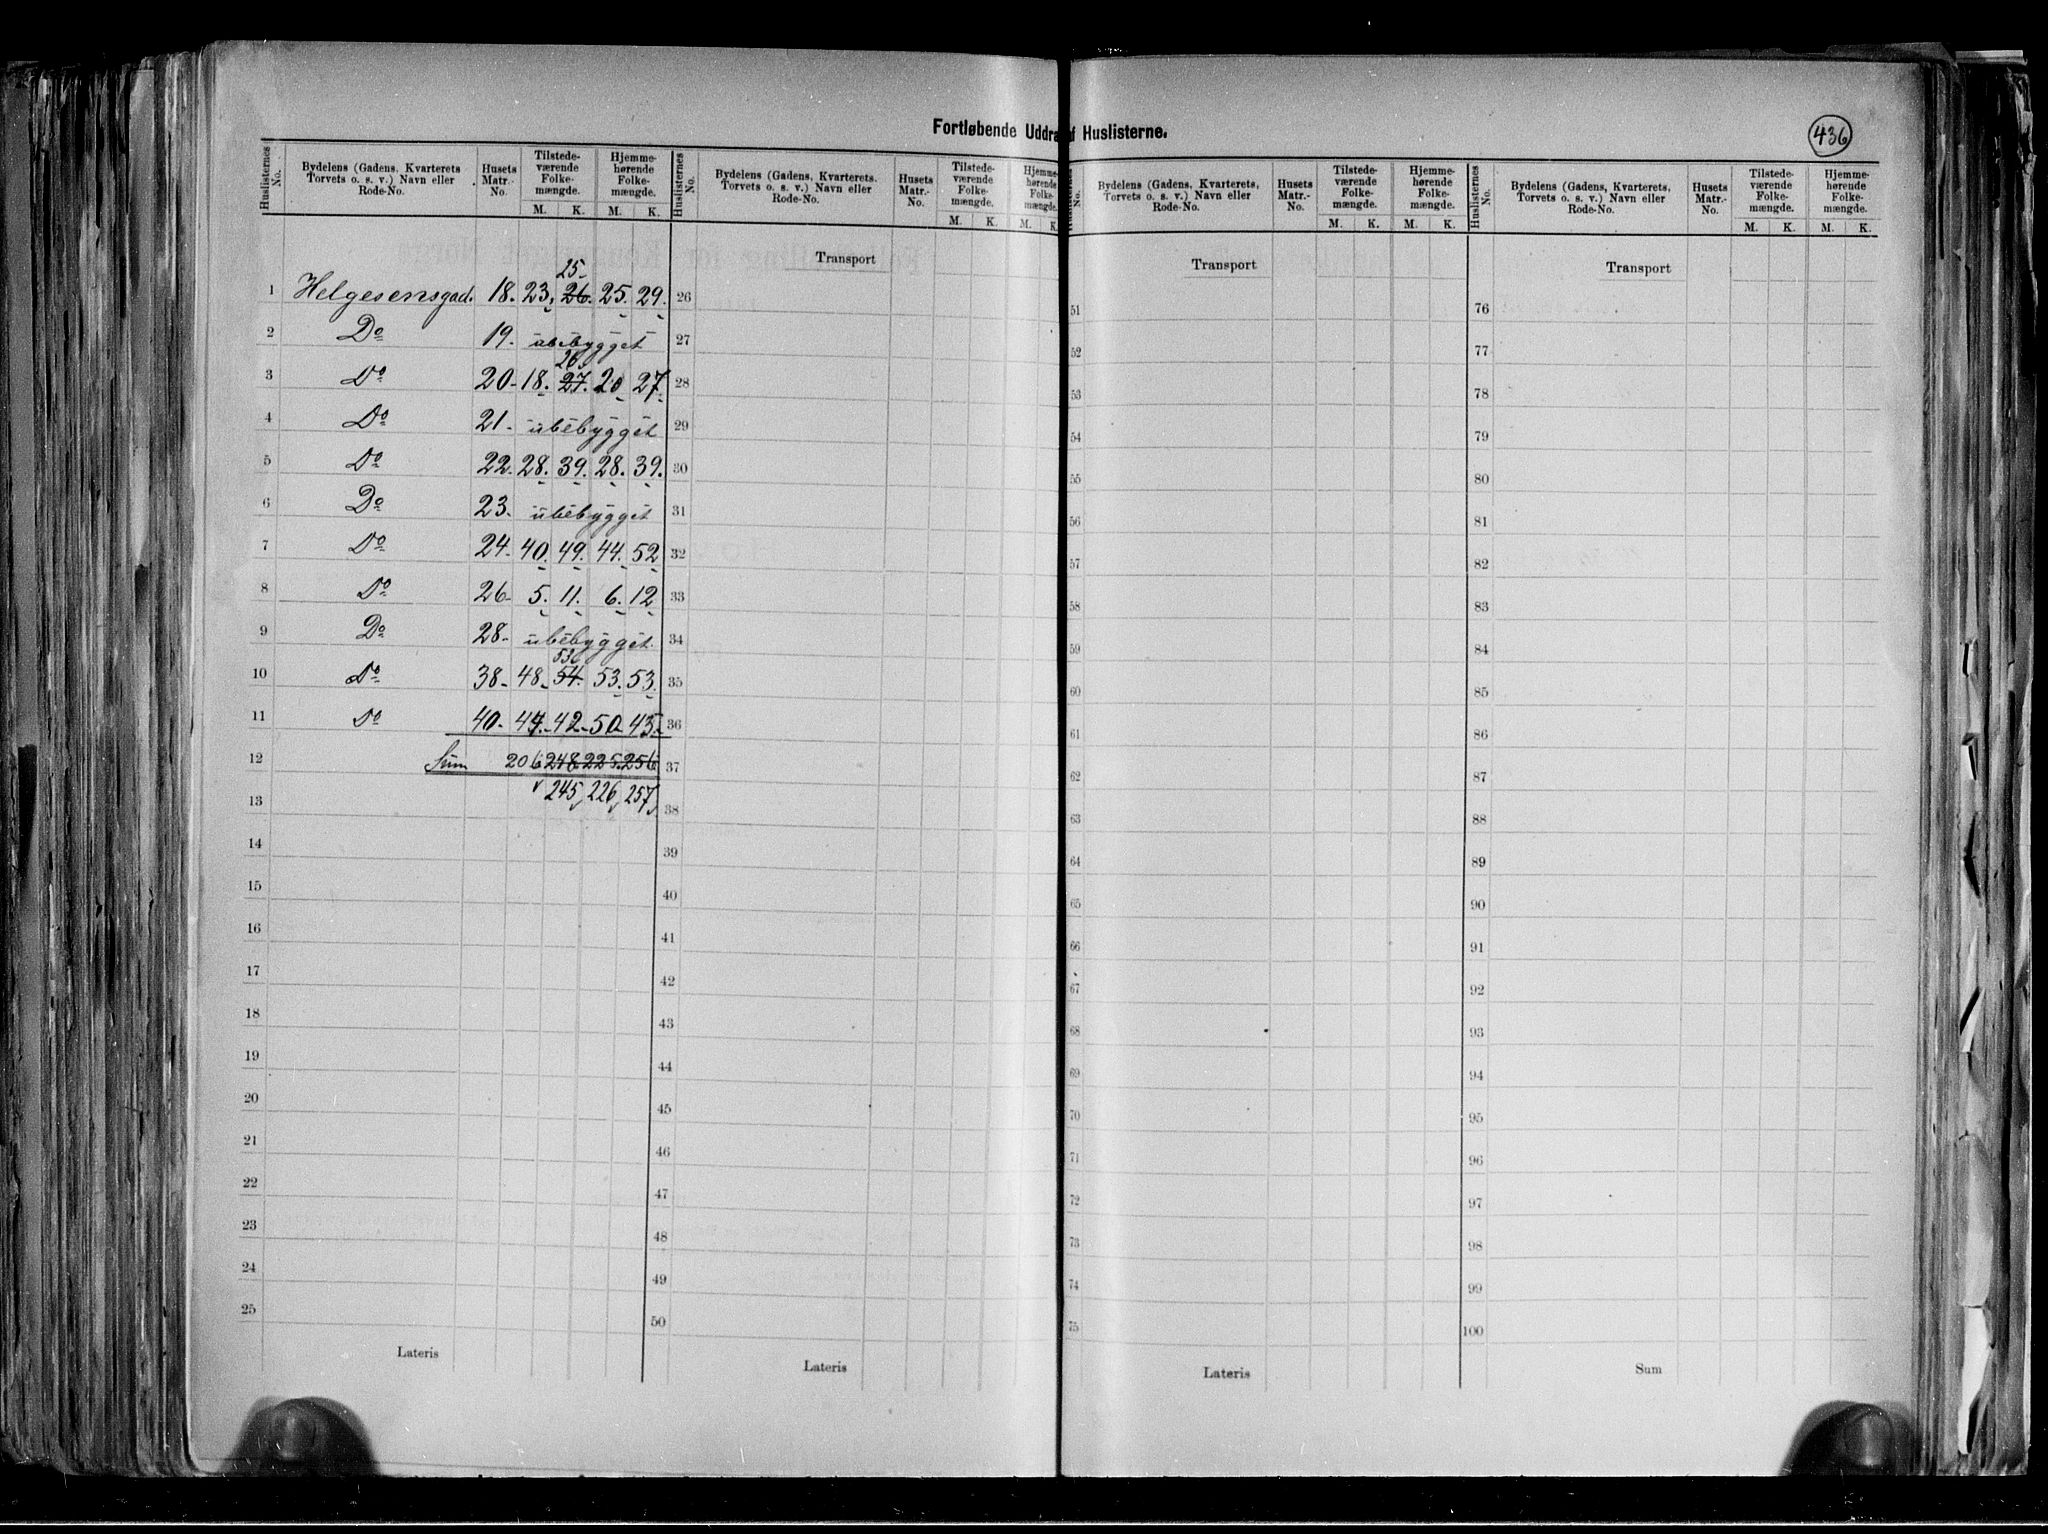 Fortløbende Uddra af Huslisterne.
436
Huslisternes No. | Bydelens (Gadens, Kvarterets Torvets o. s. v.) Navn eller Rode-No. | Husets Matr.-No. | Tilstede-værende Folke-mængde. M. K. | Hjemme-hørende Folke-mængde. M. K.
1 Helgesensgad. 18. 23. 26. 25. 25. 29.
2 Do 19. ubebygget
3 Do 20. 18. 27. 26. 20 27.
4 Do 21. ubebygget
5 Do 22. 28. 39. 28. 39.
6 Do 23. ubebygget
7 Do 24. 40. 49. 44. 52
8 Do 26. 5. 11. 6. 12
9 Do 28. ubebygget.
10 Do 38. 48. 54. 53 53. 53.
11 Do 40. 44. 42. 50. 45.
12 Sum 206 248. 225. 256
13 245, 226, 257,
14
15
16
17
18
19
20
21
22
23
24
25
Lateris
Huslisternes No. | Bydelens (Gadens, Kvarterets. Torvets o. s. v.) Navn eller Rode-No. | Husets Matr.-No. | Tilstede-værende Folke-mængde. M. K. | Hjemme-hørende Folke-mængde. M. K.
Transport
26
27
28
29
30
31
32
33
34
35
36
37
38
39
40
41
42
43
44
45
46
47
48
49
50
Lateris
No. | Bydelens (Gadens, Kvarterets, Torvets o. s. v.) Navn eller Rode-No. | Husets Matr.-No. | Tilstede-værende Folke-mængde. M. K. | Hjemme-hørende Folke-mængde. M. K.
Transport
51
52
53
54
55
56
57
58
59
60
61
62
63
64
65
66
67
68
69
70
71
72
73
74
75
Lateris
Huslisternes No. | Bydelens (Gadens, Kvarterets, Torvets o. s. v.) Navn eller Rode-No. | Husets Matr.-No. | Tilstede-værende Folke-mængde. M. K. | Hjemme-hørende Folke-mængde. M. K.
Transport
76
77
78
79
80
81
82
83
84
85
86
87
88
89
90
91
92
93
94
95
96
97
98
99
100
Sum